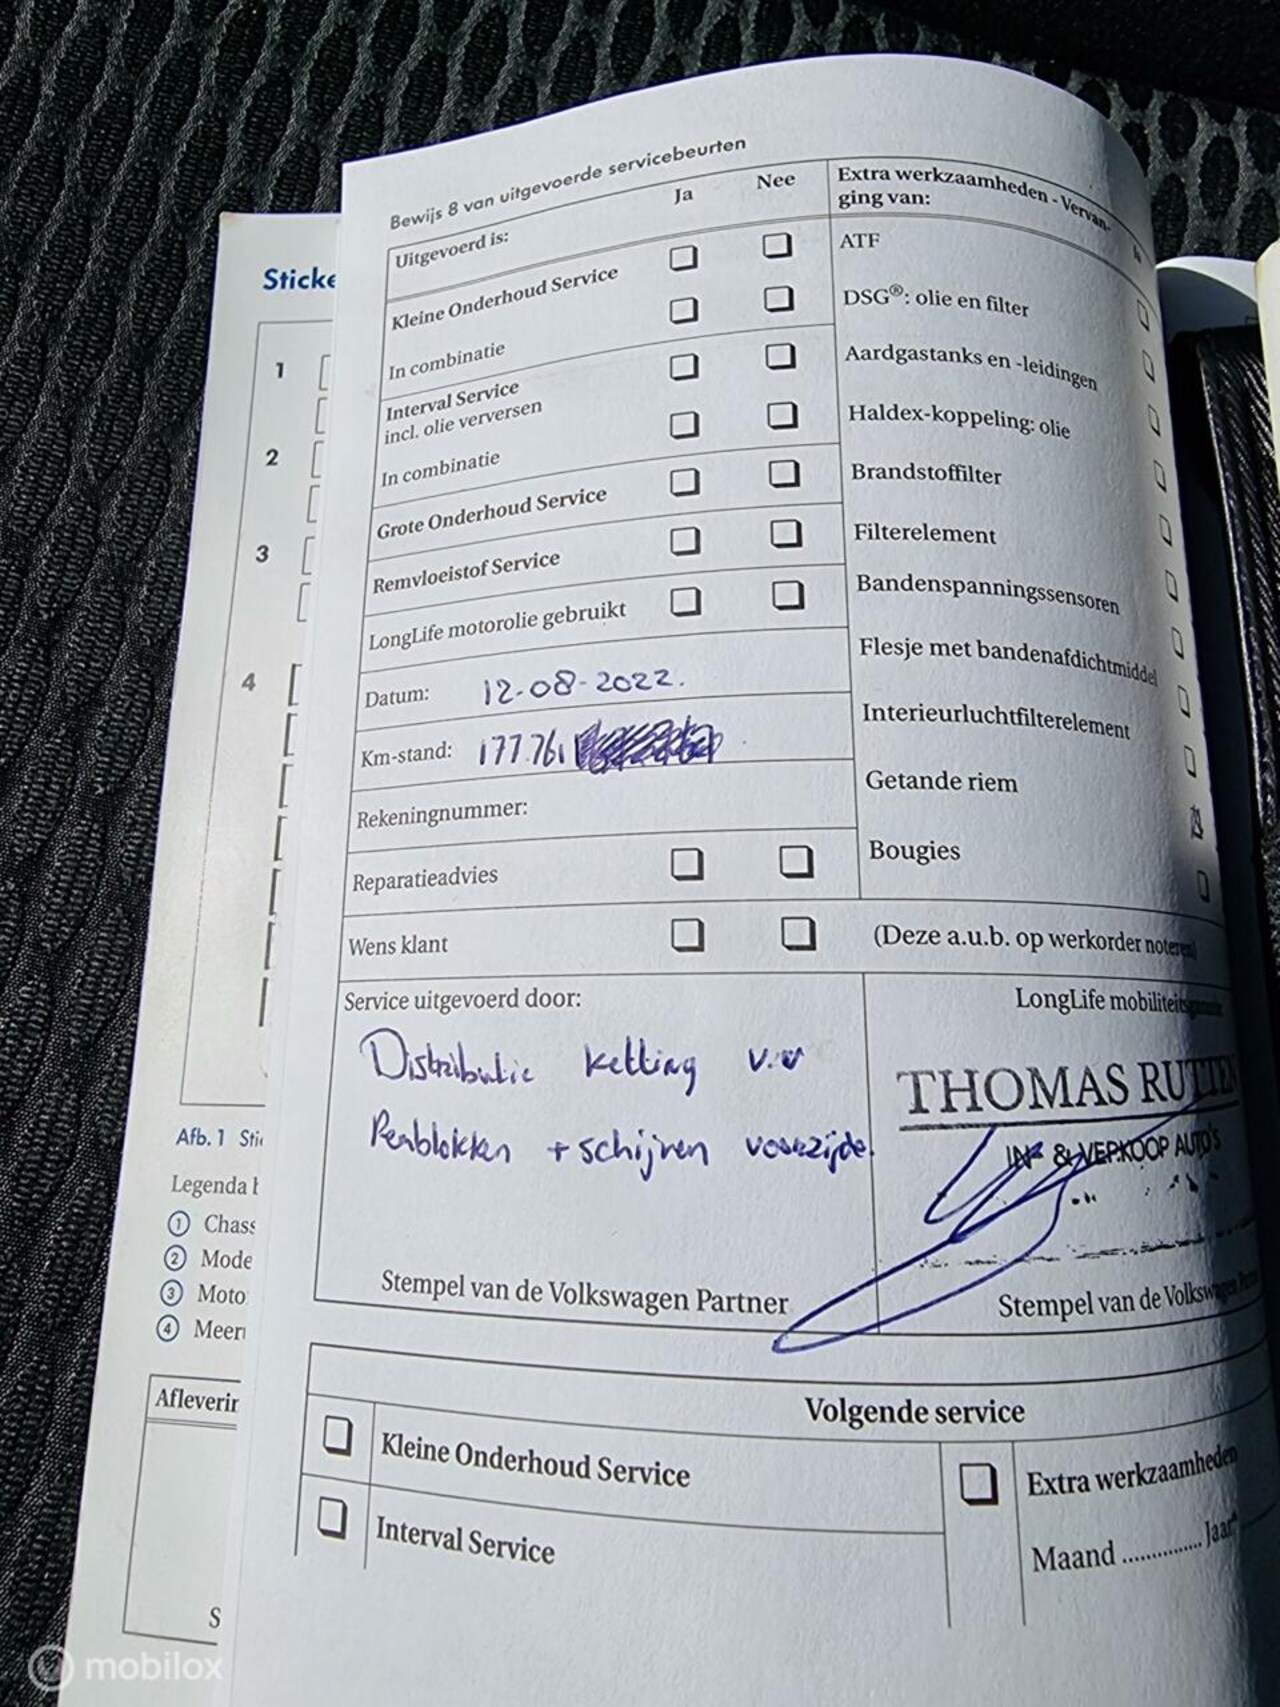 Bewijs 8 van uitgevoerde servicebeurten
Uitgevoerd is: Ja Nee
Kleine Onderhoud Service
In combinatie
Interval Service
incl. olie verversen
In combinatie
Grote Onderhoud Service
Remvloeistof Service
LongLife motorolie gebruikt
Datum: 12-08-2022.
Km-stand: 177.761
Rekeningnummer:
Reparatieadvies
Wens klant
Extra werkzaamheden - Vervan-
ging van:
ATF
DSG®: olie en filter
Aardgastanks en -leidingen
Haldex-koppeling: olie
Brandstoffilter
Filterelement
Bandenspanningssensoren
Flesje met bandenafdichtmiddel
Interieurluchtfilterelement
Getande riem
Bougies
(Deze a.u.b. op werkorder noteren)
Service uitgevoerd door:
Distributie ketting v.v
Remblokken + schijven voorzijde.
Stempel van de Volkswagen Partner
LongLife mobiliteitsgarantie
THOMAS RUTTEN
IN- & VERKOOP AUTO'S
Stempel van de Volkswagen Partner
Volgende service
Kleine Onderhoud Service
Interval Service
Extra werkzaamheden
Maand .............. Jaar
Sticke
1
2
3
4
Afb. 1 Stic
Legenda b
1 Chass
2 Mode
3 Moto
4 Meer
Afleverin
S
mobilox